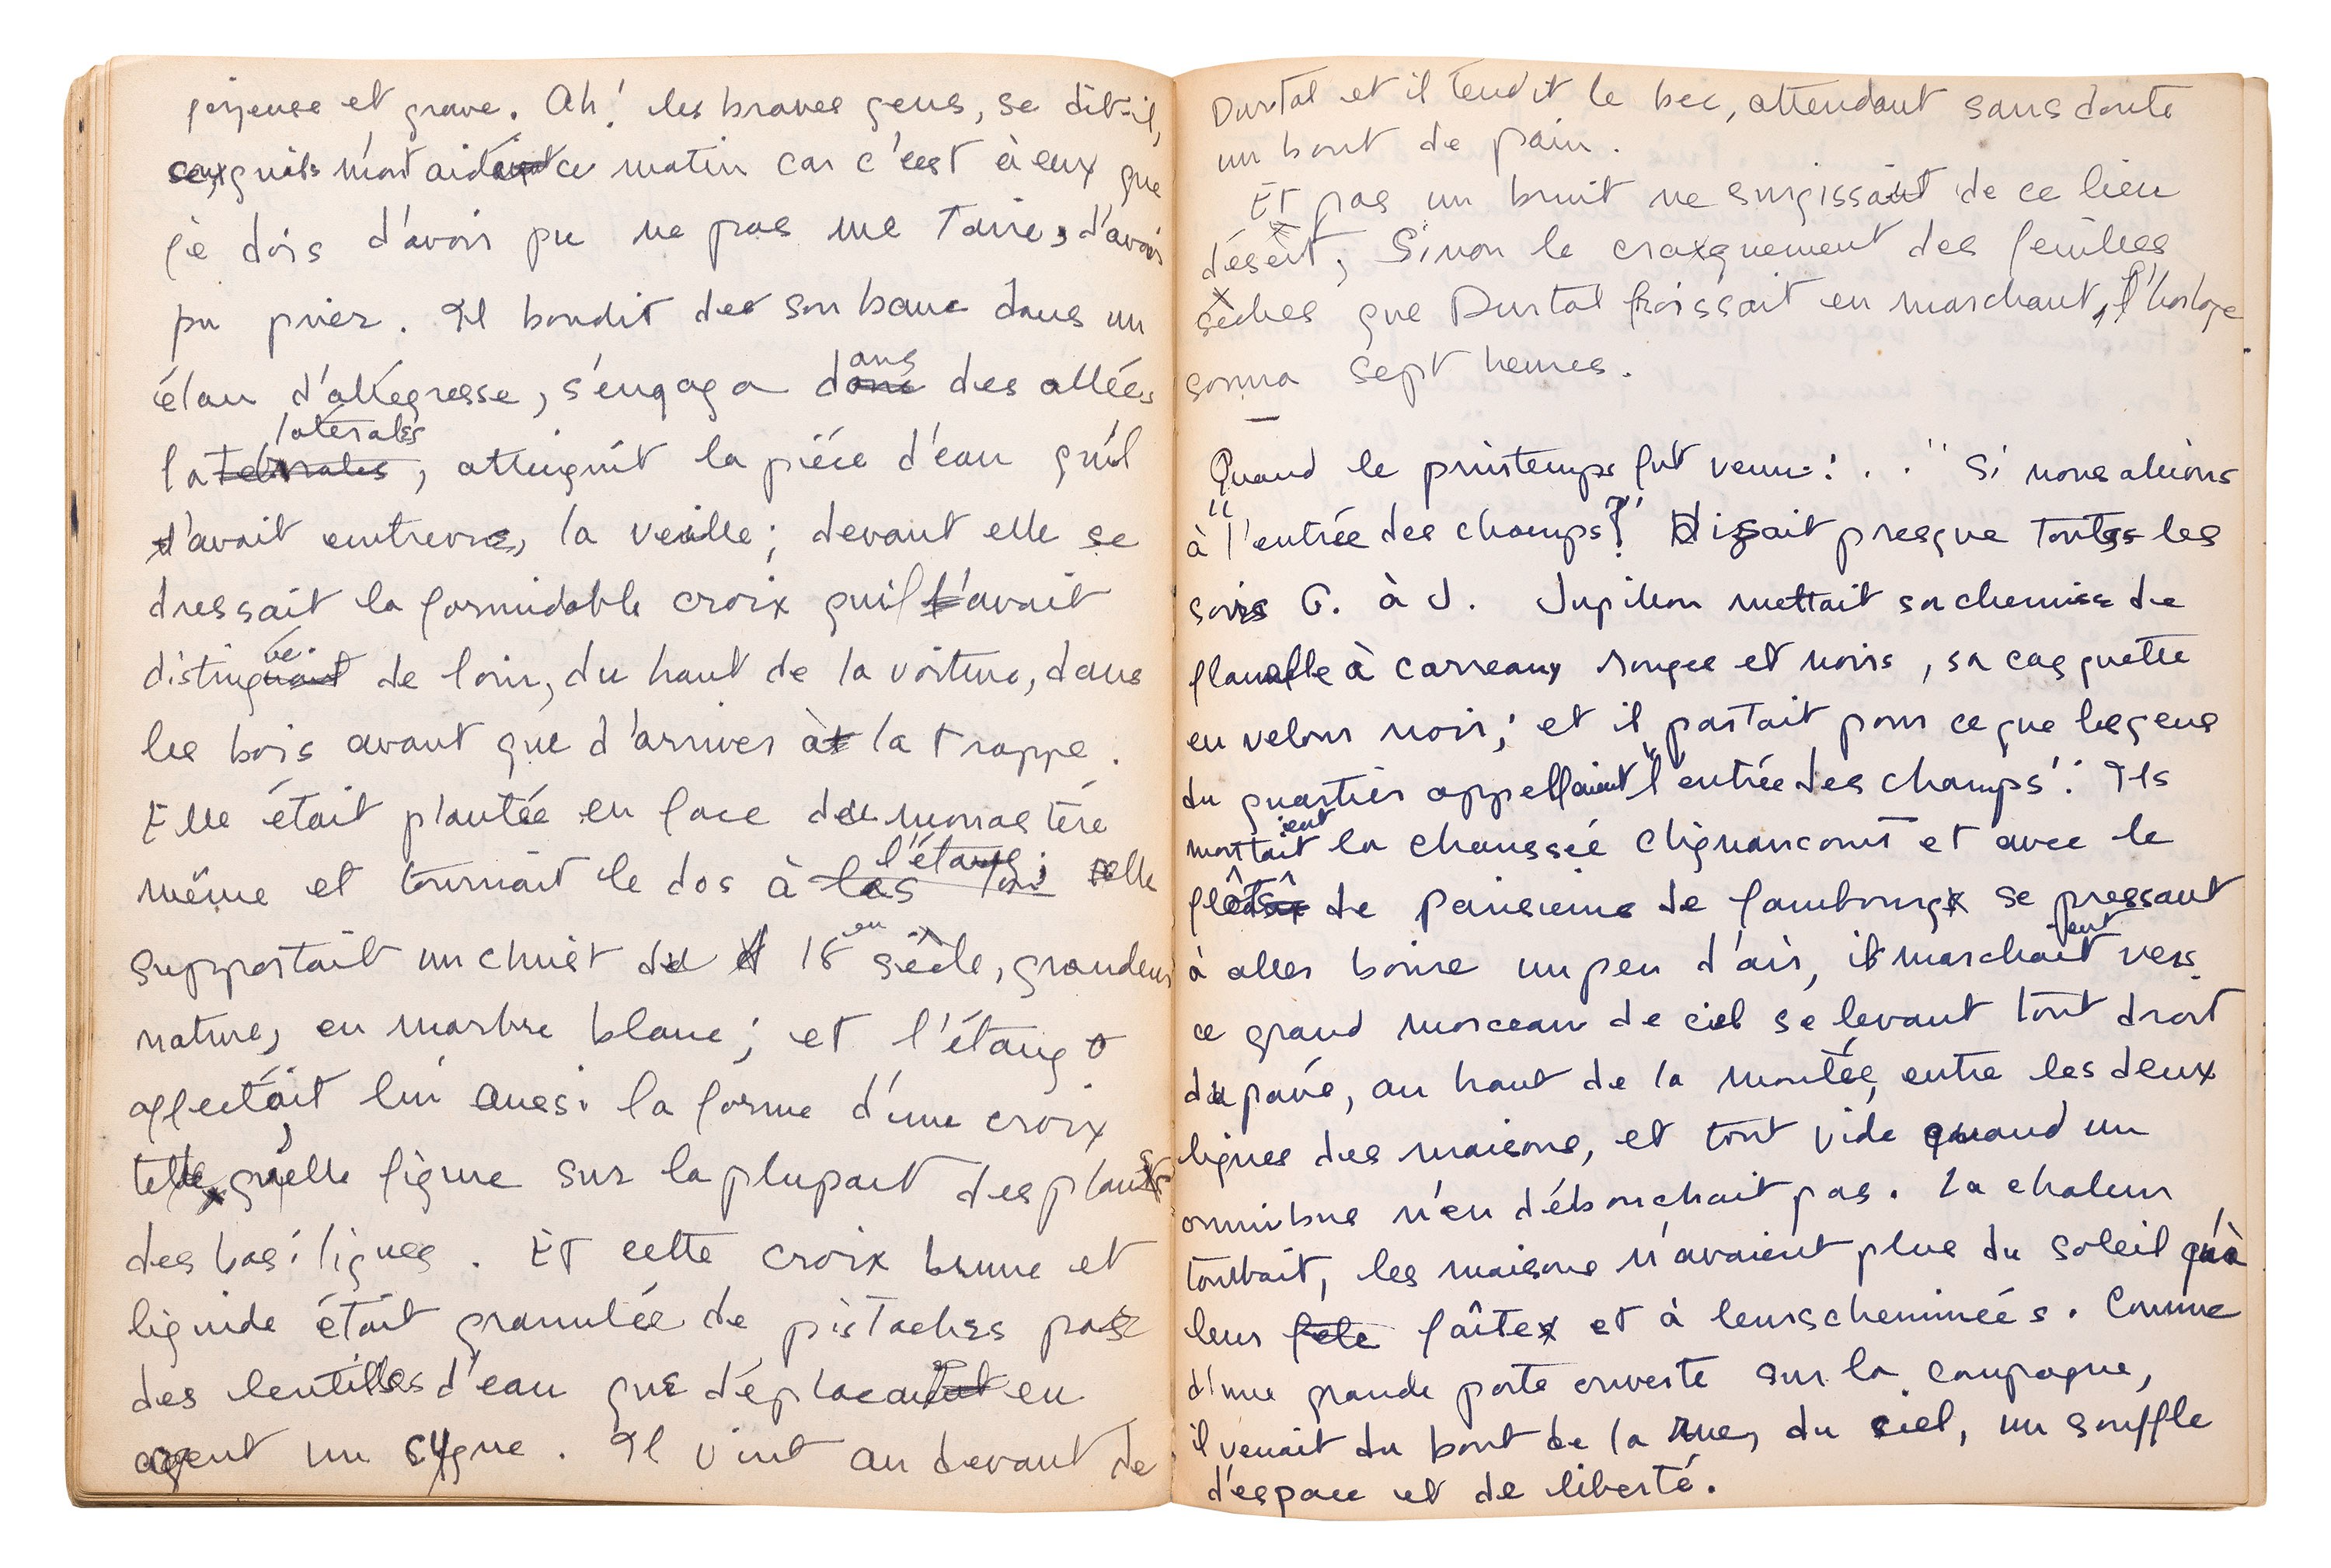 joyeuse et grave. Ah! les braves gens, se dit-il,
qu'ils m'ont aidé ce matin car c'est à eux que
je dois d'avoir pu ne pas me taire, d'avoir
pu prier. Il bondit de son banc dans un
élan d'allégresse, s'engaga dans des allées
latérales, atteignit la pièce d'eau qu'il
avait entrevue, la veille; devant elle se
dressait la formidable croix qu'il avait
distinguée de loin, du haut de la voiture, dans
les bois avant que d'arriver à la trappe.
Elle était plantée en face du monastère
même et tournait le dos à l'étang; elle
supportait un christ du 18 en siècle, grandeur
nature, en marbre blanc; et l'étang
affectait lui aussi la forme d'une croix
telle qu'elle figure sur la plupart des plans
des basiliques. Et cette croix brune et
liquide était granulée de pistaches par
des lentilles d'eau que déplaçait en
agent un cygne. Il vint au devant de
Durtal et il tendit le bec, attendant sans doute
un bout de pain.
Et pas un bruit ne surgissait de ce lieu
désert, Sinon le craquement des feuilles
sèches que Durtal froissait en marchant, l'horloge
sonna sept heures.
Quand le printemps fut venu: .. "Si nous allions
à "l'entrée des champs?" Disait presque tous les
soirs G. à J. Jupillon mettait sa chemise de
flanelle à carreaux rouges et noirs, sa casquette
en velours noir; et il partait pour ce que les gens
du quartier appellaient "l'entrée des champs". Ils
montaient la chaussée Clignancourt et avec le
flôt de parisiens de faubourg se pressant
à aller boire un peu d'air, ils marchaient vers
ce grand morceau de ciel se levant tout droit
du pavé, au haut de la montée, entre les deux
lignes des maisons, et tout vide quand un
omnibus n'en débouchait pas. La chaleur
tombait, les maisons n'avaient plus du soleil qu'à
leur fête faîte et à leurs cheminées. Comme
d'une grande porte ouverte sur la campagne,
il venait du bout de la rue, du ciel, un souffle
d'espace et de liberté.